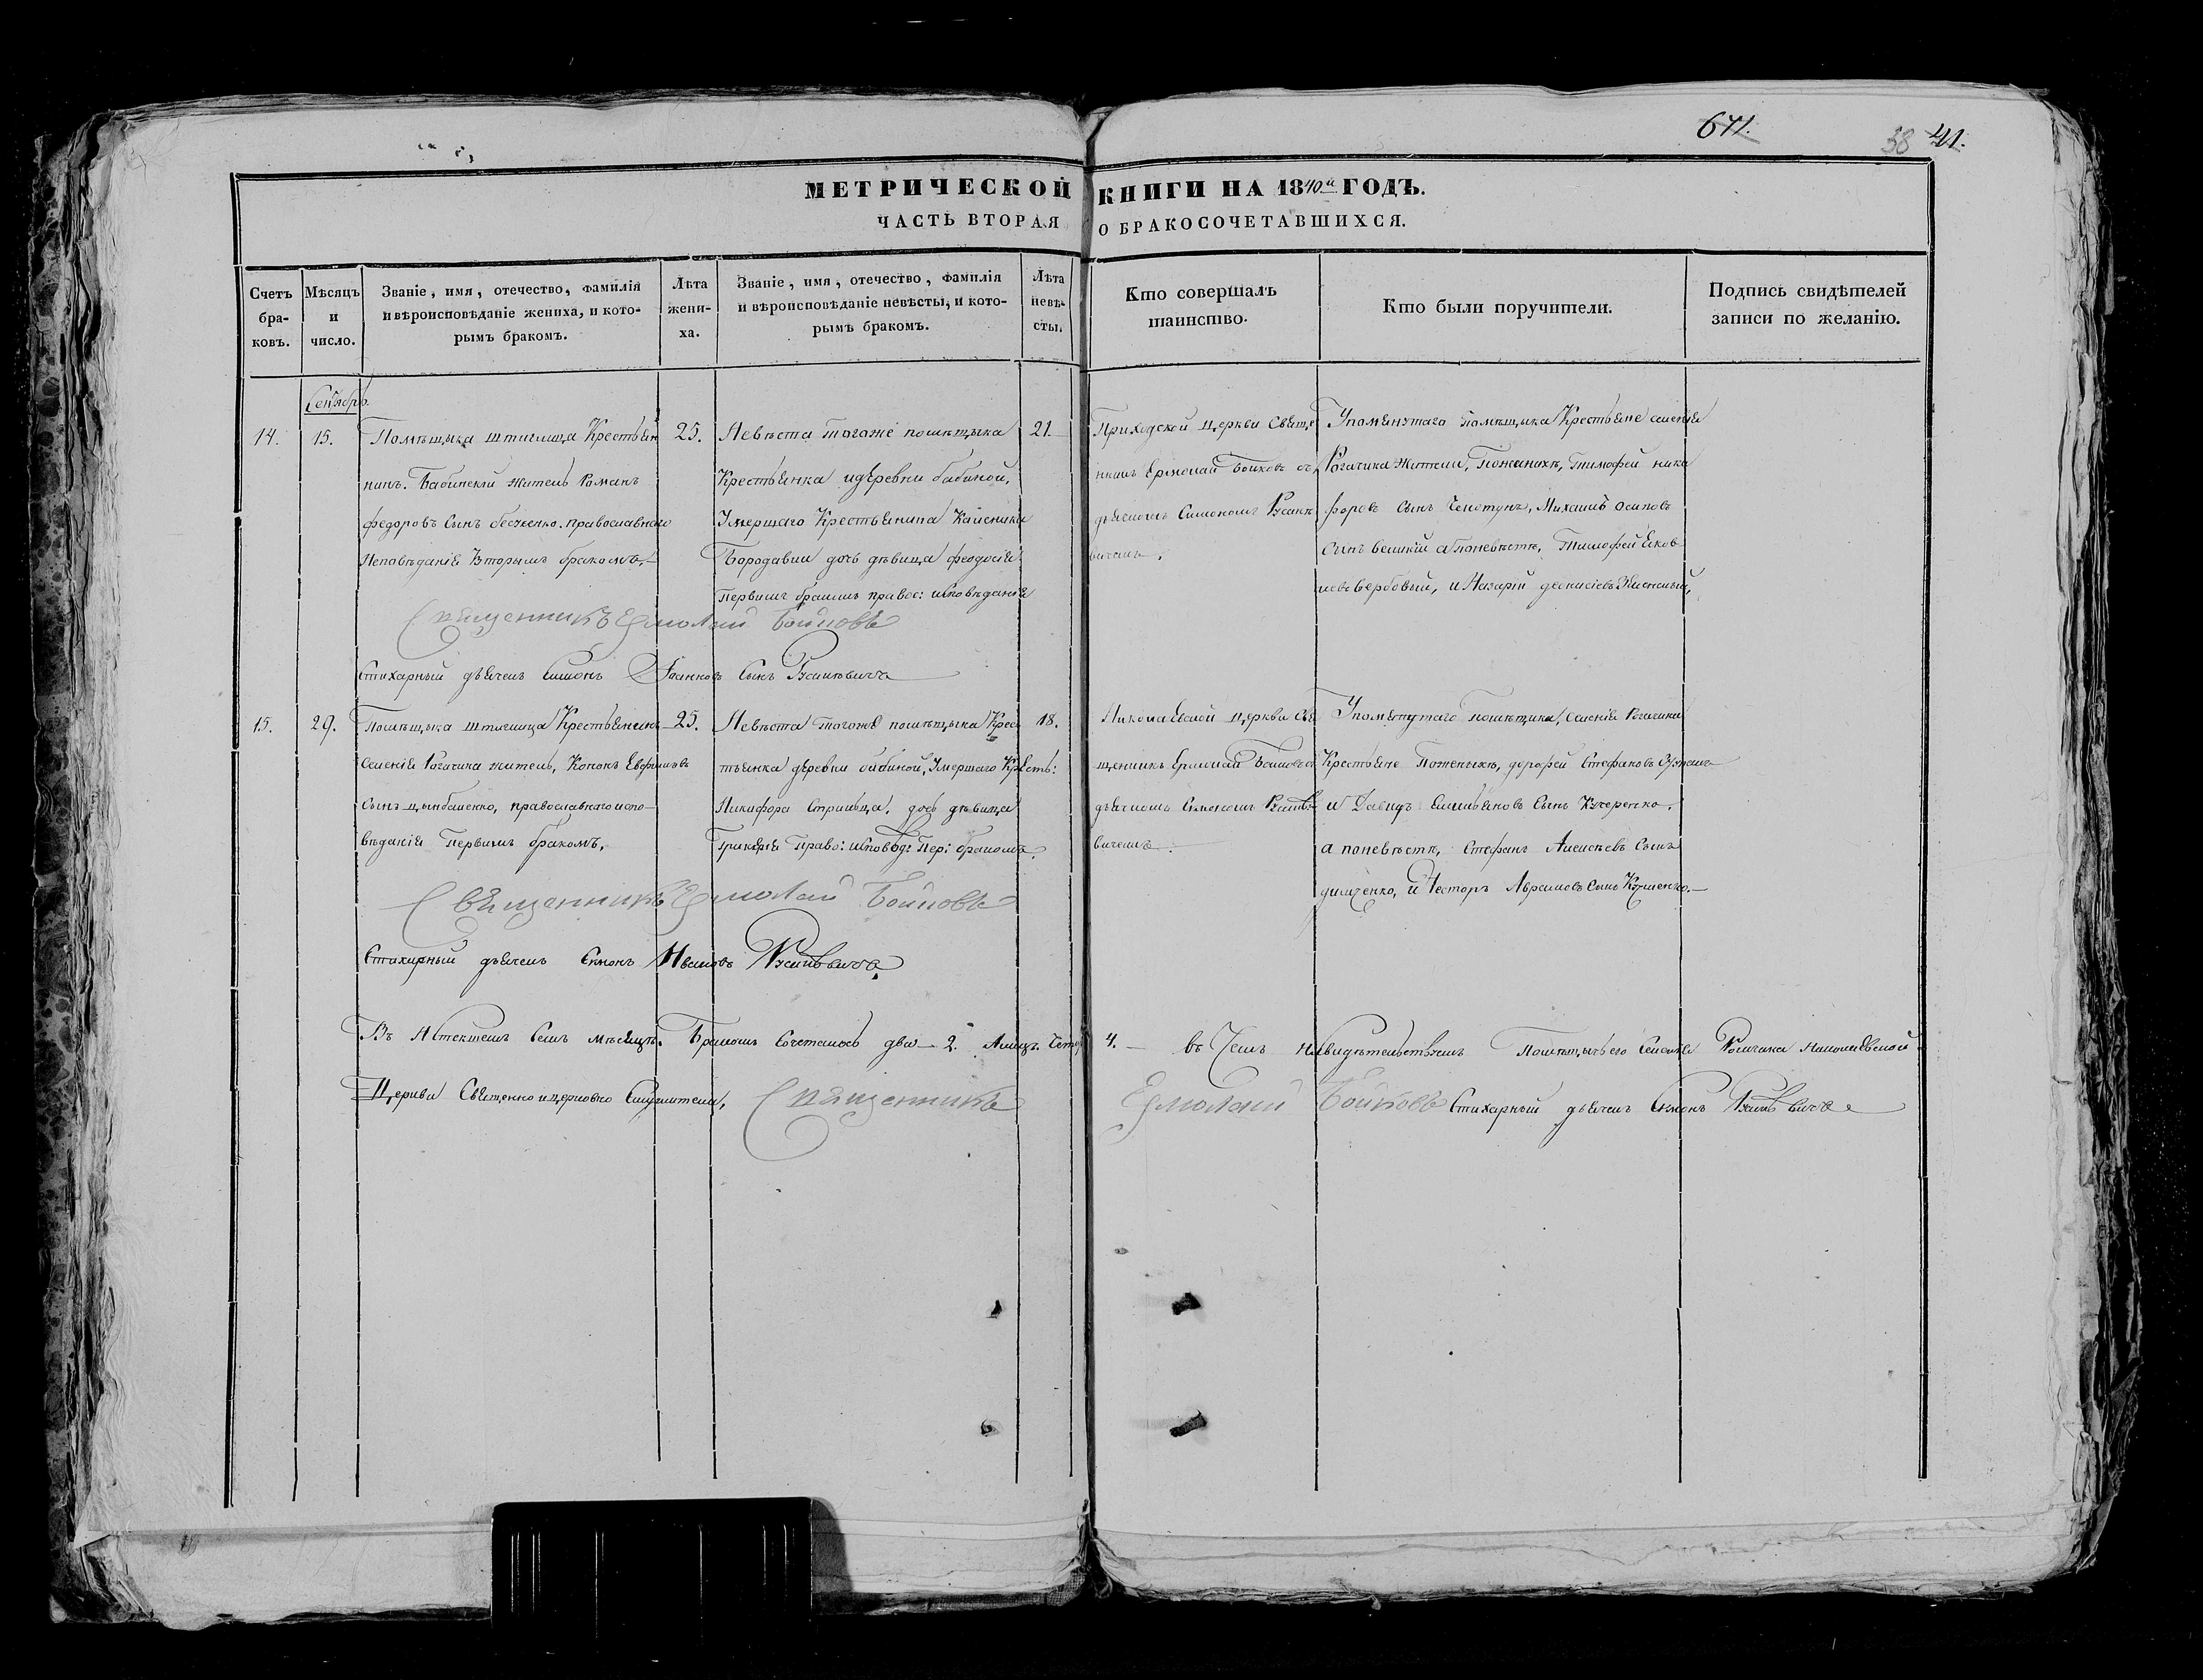 671.
38 41.
МЕТРИЧЕСКОЙ КНИГИ НА 1840й ГОДЪ.
ЧАСТЬ ВТОРАЯ О БРАКОСОЧЕТАВШИХСЯ.
Счетъ бра-ковъ.
Мѣсяцъ и число.
Званіе, имя, отечество, фамилія
и вѣроисповѣданіе жениха, и кото-
рымъ бракомъ.
Лѣта жени-ха.
Званіе, имя, отечество, фамилія
и вѣроисповѣданіе невѣсты, и кото-
рымъ бракомъ.
Лѣта невѣ-сты.
Кто совершалъ
таинство.
Кто были поручители.
Подпись свидѣтелей
записи по желанію.
Сентябрь.
14.
15.
Помѣщыка штиглица Крестьян
нинъ. Бабинскій житель Романъ
федоровъ сынъ православнаго
Исповѣданія Вторымъ бракомъ.
25.
Невѣста тогоже помѣщыка
Крестьянка деревни бабиной,
Умершаго Крестьянина
Бородавки дочь дѣвица феодосія
первымъ бракомъ правос: исповѣданія
21.
Приходской церкви Свяще
никъ Ермолай Бойковъ съ
дьячкомъ Симономъ
вичемъ.
Упомянутаго помѣщыка Крестьяне селенія
Рогачика жители, Поженихѣ, Тимофей ники
форовъ сынъ Михаилъ осиповъ
сынъ великій а поневѣстѣ, Тимофей Яков
левъ вербовый, и Назарій
Священникъ Ермолай Бойковъ
Стихарный дьячекъ Симонъ Іванновъ Сынъ
15.
29.
Помѣщыка штиглица Крестьянинъ
селенія Рогачика житель, Кононъ Евфимовъ
сынъ цымбаленко, православнаго испо-
вѣданія Первымъ бракомъ.
25.
Невѣста тогоже помѣщыка Крес
тьянка деревни бабиной, Умершаго Кресть:
Никифора Стрильца, дочь дѣвица
Гликерія Право: исповѣд: Пер: бракомъ.
18.
Николаевской церкви Свя
щенникъ Ермолай Бойковъ съ
дьячкомъ Симономъ
вичемъ.
Упомянутаго помѣщика, селенія Рогачика
Крестьяне Поженихѣ, дорофей Стефановъ
и Давидъ Емильяновъ Сынъ Кучеренко.
а поневѣстѣ, Стефанъ Алексѣевъ Сынъ
и Несторъ Аврамовъ сынъ
Священникъ Ермолай Бойковъ
Стихарный дьячекъ Симонъ Ивановъ
Въ Истекшемъ семъ мѣсяцѣ. Бракомъ Сочеталось два 2. лицъ. Четыре 4. въ Чемъ и свидѣтельствуемъ Помѣщычьего Селенія Рогачика николаевской
Церкви Священно и церковно Служители, Священникъ Ермолай Бойковъ Стихарный дьячекъ Симонъ